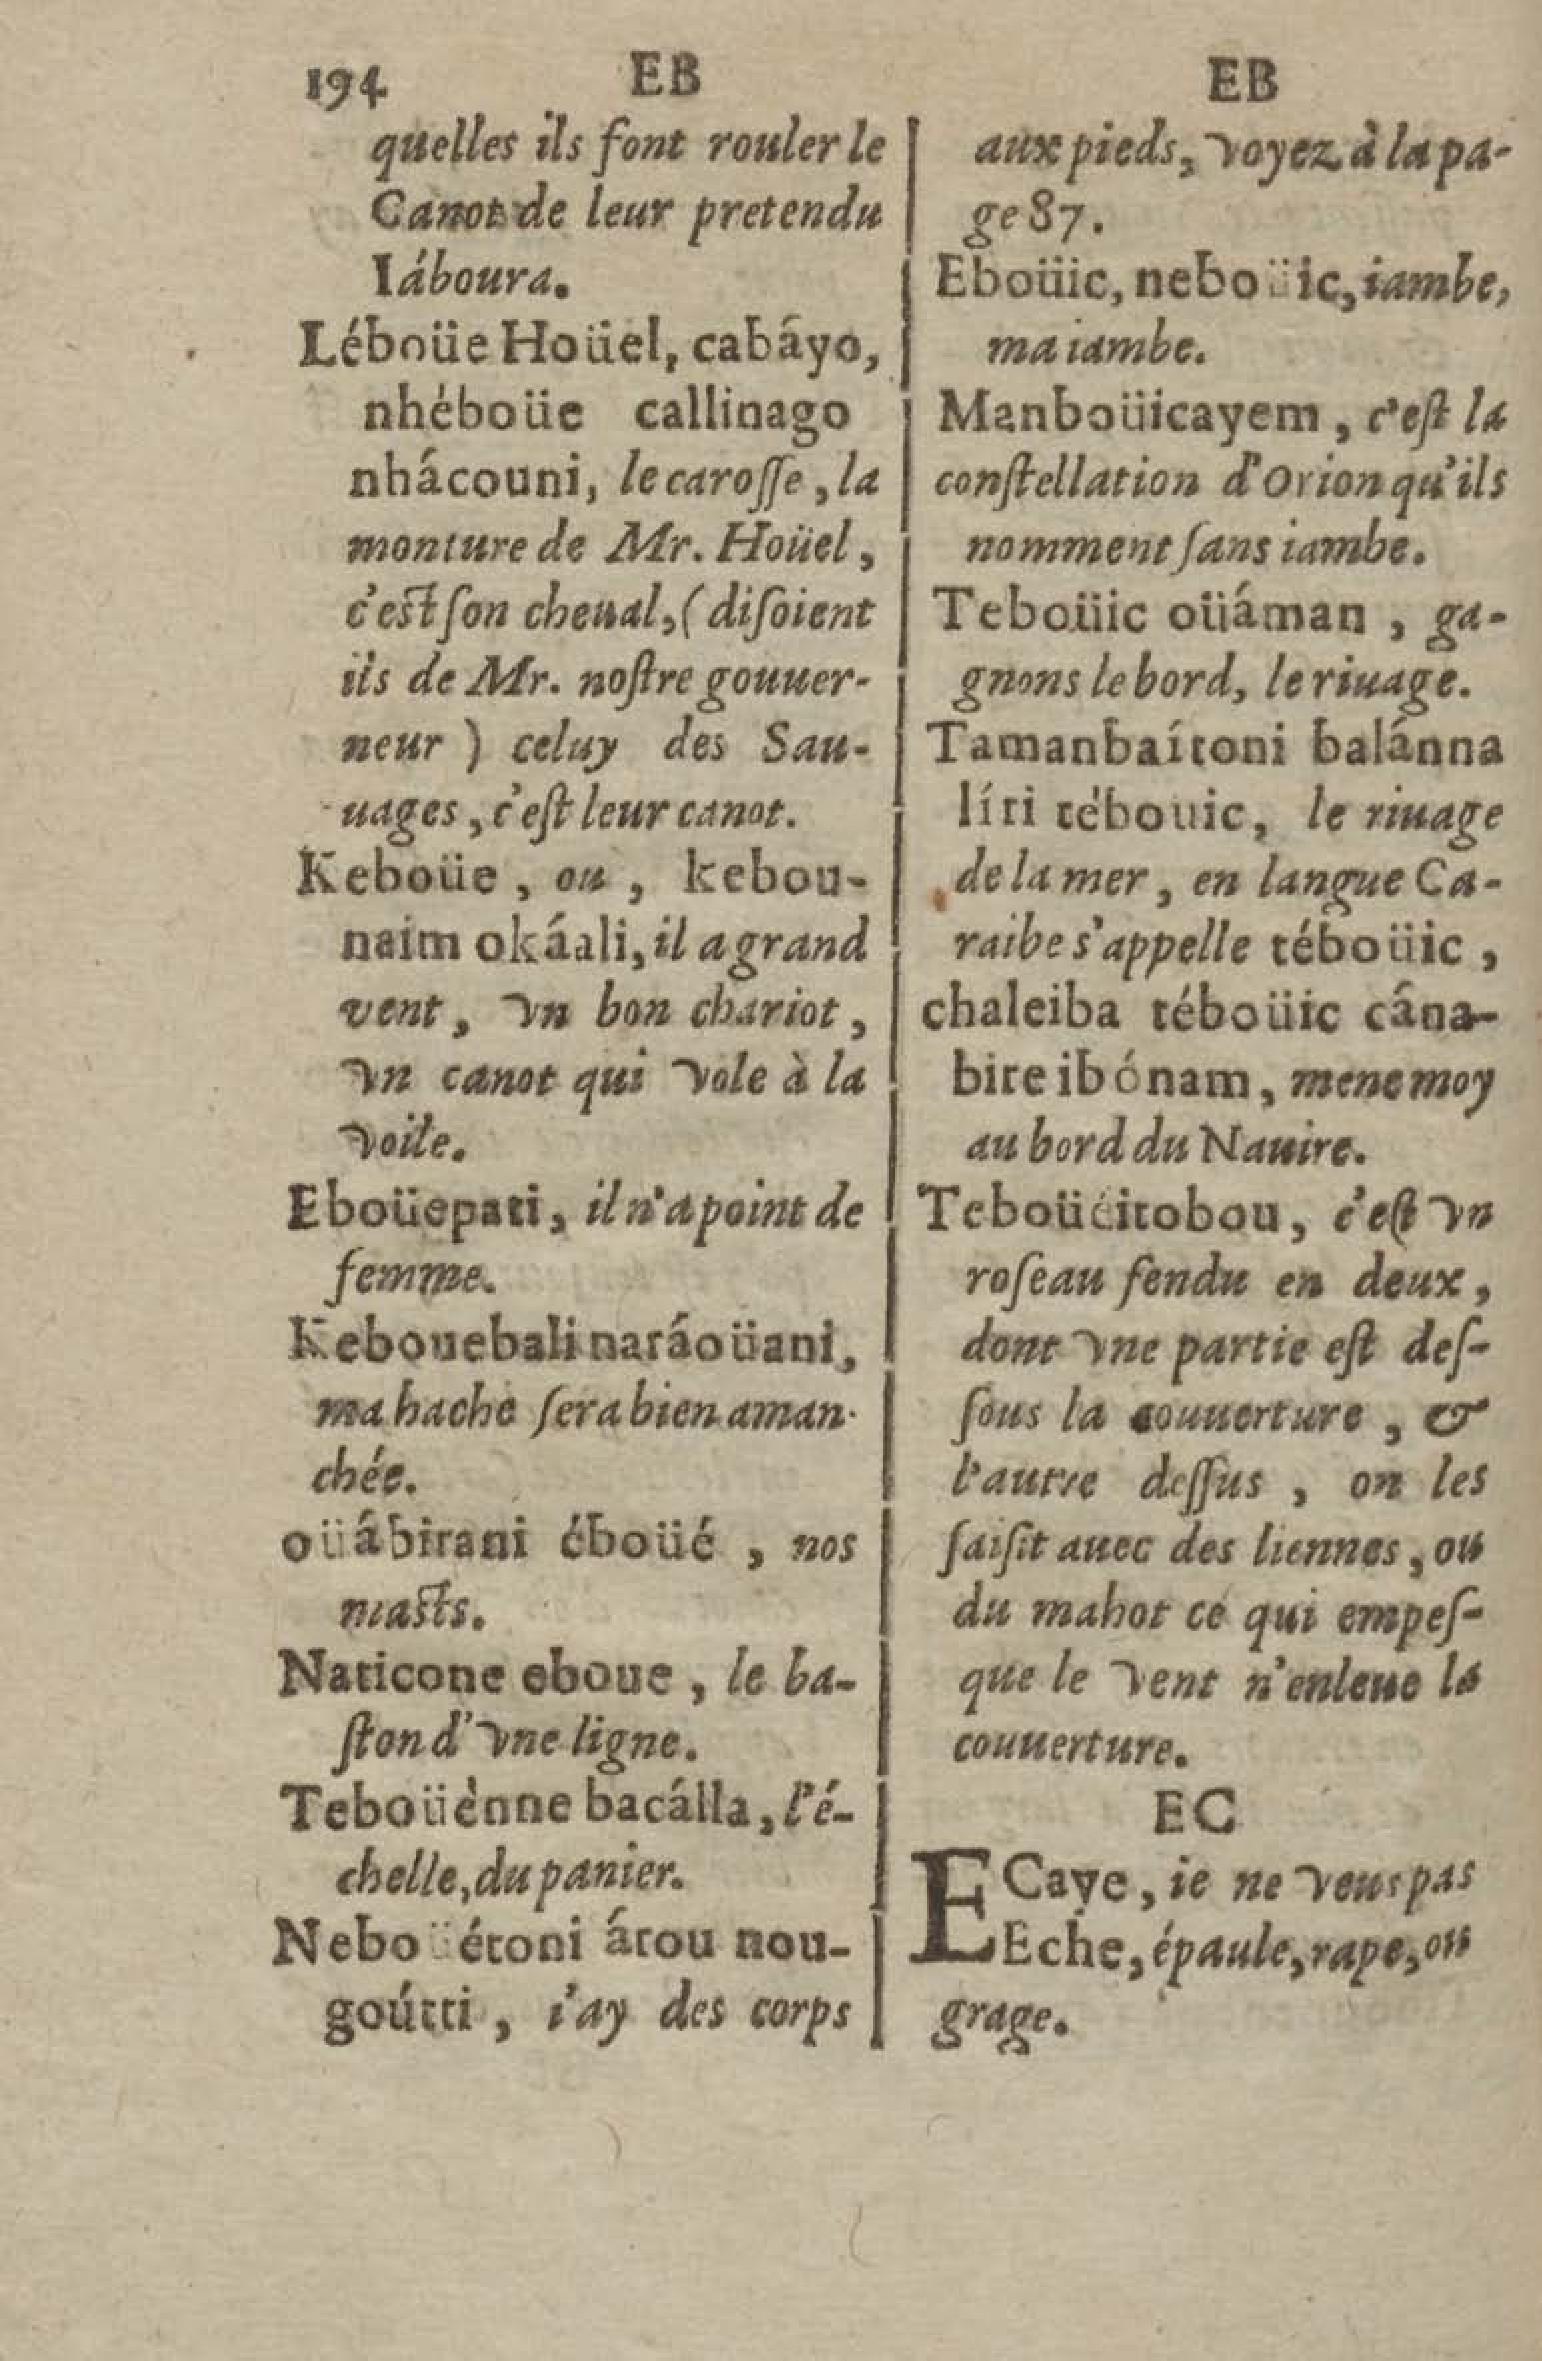 194 EB EB
quelles ils font rouler le
Canot de leur pretendu
Iáboura.
Léboüe Hoüel, cabáyo,
nhéboüe callinago
nhácouni, le carosſe, la
monture de Mr. Hoüel,
c'est ſon cheual, (diſoient
ils de Mr. noſtre gouuer-
neur) celuy des Sau-
uages, c'eſt leur canot.
Keboüe, ou, kebou-
naim okáali, il a grand
vent, vn bon chariot,
vn canot qui vole à la
voile.
Eboüepati, il n'a point de
femme.
Kebouebali naráoüani,
ma hache ſera bien aman-
chée.
oüâbirani éboüé, nos
masts.
Naticone eboue, le ba-
ſton d'vne ligne.
Teboüènne bacálla, l'é-
chelle, du panier.
Neboüétoni átou nou-
goútti, i'ay des corps
aux pieds, voyez à la pa-
ge 87.
Eboüic, neboüic, iambe,
ma iambe.
Manboüicayem, c'eſt la
conſtellation d'Orion qu'ils
nomment ſans iambe.
Teboüic oüáman, ga-
gnons le bord, le riuage.
Tamanbaítoni balánna
líri tébouic, le riuage
de la mer, en langue Ca-
raibe s'appelle téboüic,
chaleiba téboüic câna-
bire ibónam, mene moy
au bord du Nauire.
Teboüéitobou, c'eſt vn
roſeau fendu en deux,
dont vne partie eſt deſ-
ſous la couuerture, &
l'autre deſſus, on les
ſaiſit auec des liennes, ou
du mahot ce qui empeſ-
que le vent n'enleue la
couuerture.
EC
ECaye, ie ne veus pas
Eche, épaule, rape, ou
grage.